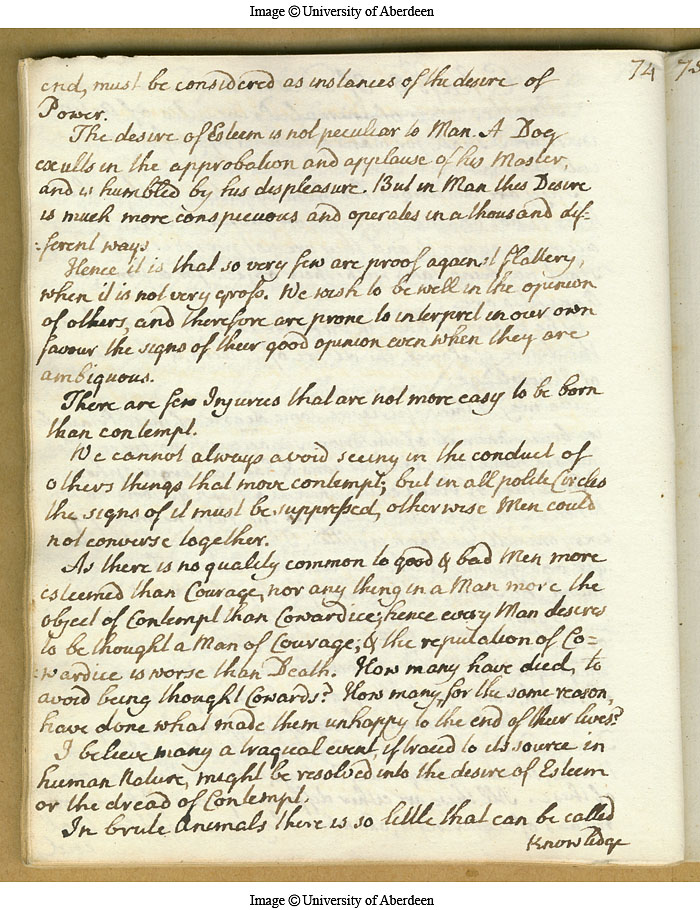 Image © University of Aberdeen
74
75
end, must be considered as instances of the desire of
Power.
The desire of Esteem is not peculiar to Man. A Dog
exults in the approbation and applause of his Master,
and is humbled by his displeasure. But in Man this Desire
is much more conspicuous and operates in a thousand dif-
-ferent ways
Hence it is that so very few are proof against flattery,
when it is not very gross. We wish to be well in the opinion
of others, and therefore are prone to interpret in our own
favour the signs of their good opinion even when they are
ambiguous.
There are few Injuries that are not more easy to be born
than contempt.
We cannot always avoid seeing in the conduct of
others things that move contempt; but in all polite Circles
the signs of it must be suppressed, otherwise Men could
not converse together.
As there is no quality common to good & bad Men more
esteemed than Courage, nor any thing in a Man more the
object of Contempt than Cowardice; hence every Man desires
to be thought a Man of Courage; & the reputation of Co=
=wardice is worse than Death. How many have died, to
avoid being thought Cowards? How many, for the same reason,
have done what made them unhappy to the end of their lives?
I believe many a tragical event, if traced to its source in
human Nature, might be resolved into the desire of Esteem
or the dread of Contempt.
In brute Animals there is so little that can be called
Knowledge
Image © University of Aberdeen